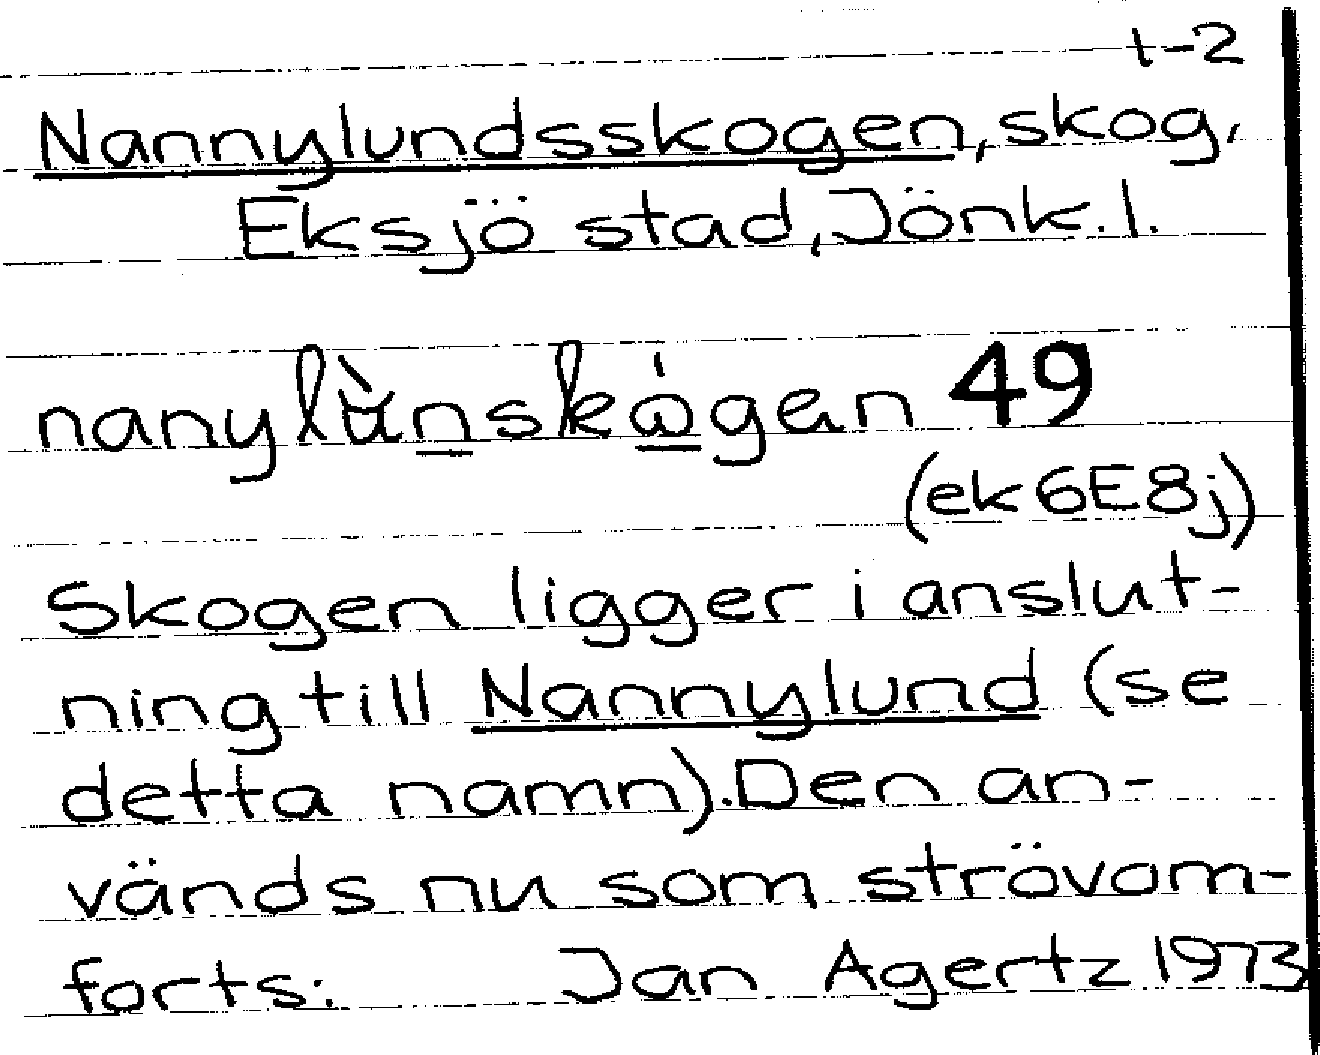 1-2
Nannylundsskogen, skog,
Eksjö stad, Jönk. l.
nanylùnskògen 49
(ek6E8j)
Skogen ligger i anslut-
ning till Nannylund (se
detta namn). Den an-
vänds nu som strövom-
forts: Jan Agertz 1973